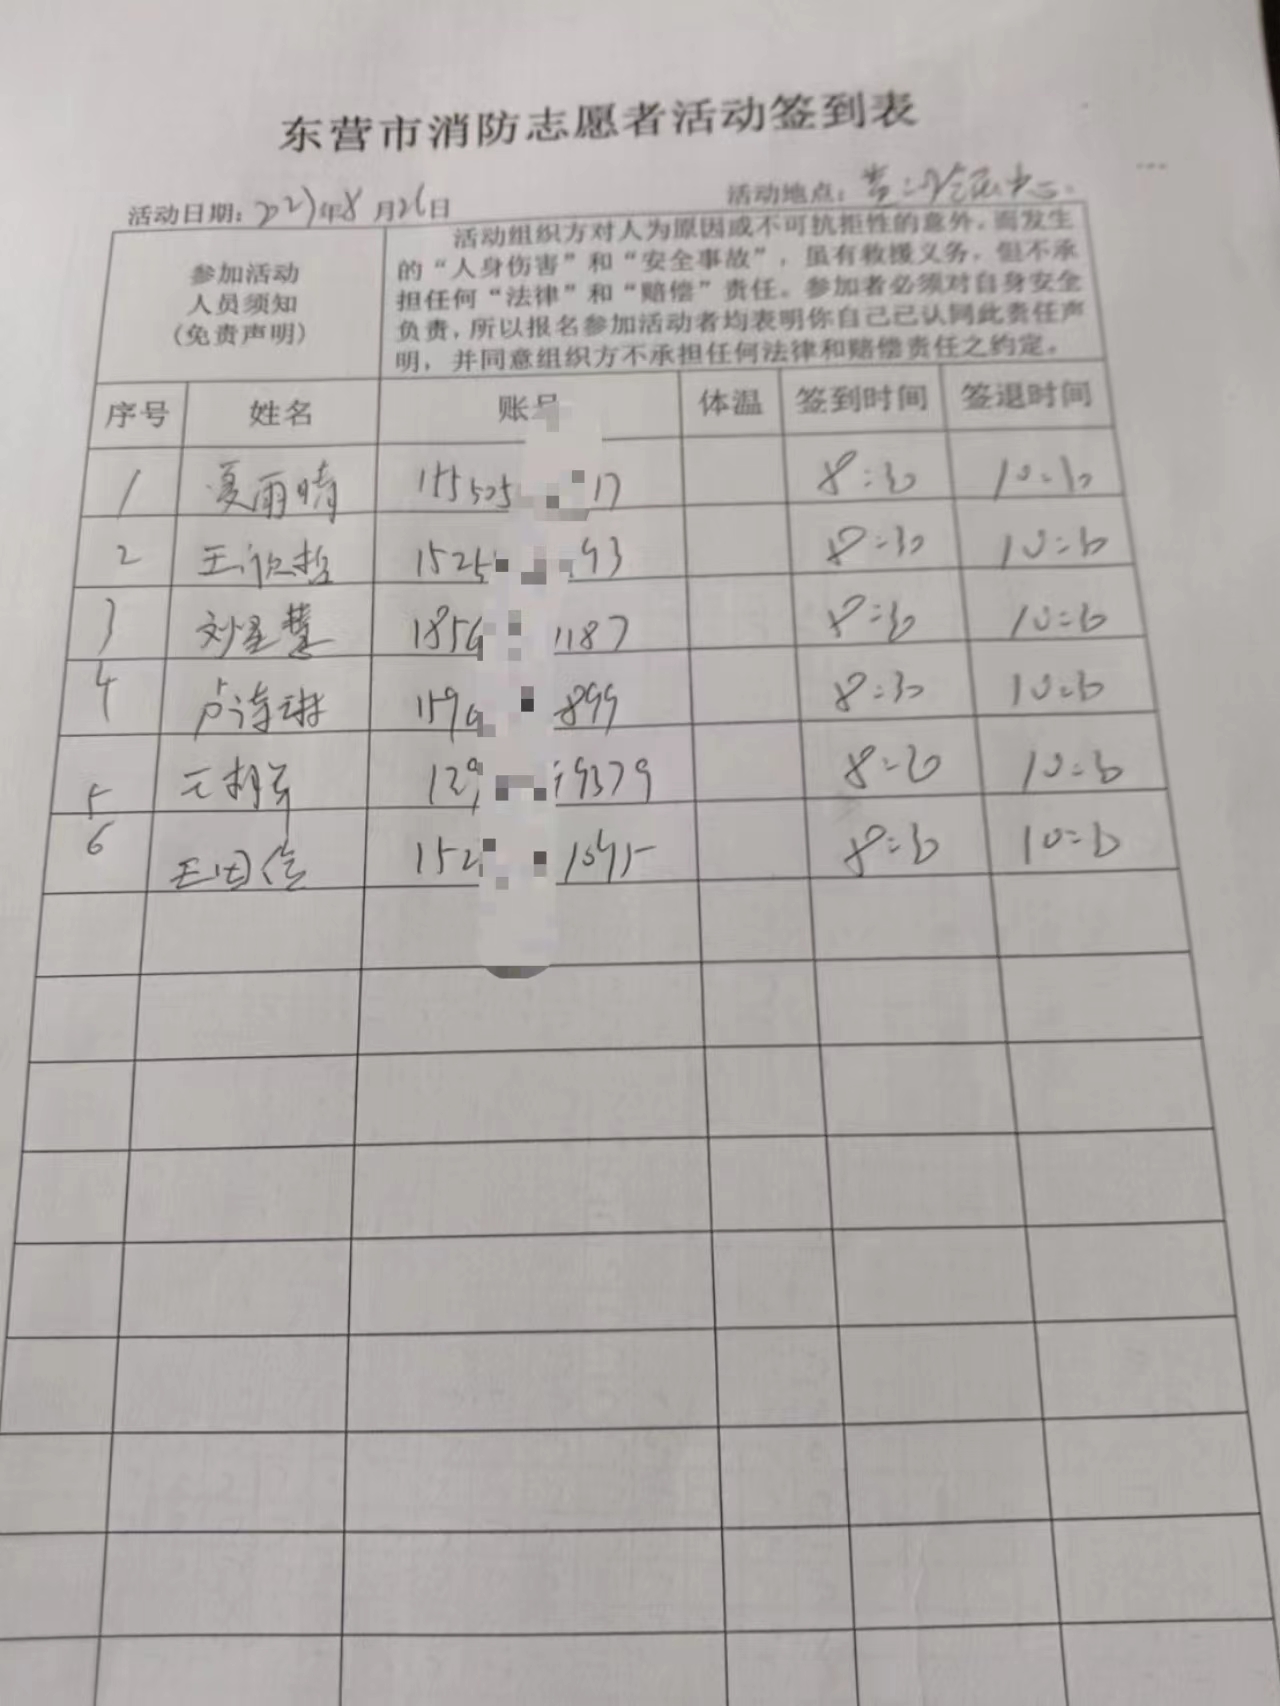 东营市消防志愿者活动签到表
活动日期：2023年8月26日 活动地点：
参加活动
人员须知
(免责声明)
活动组织方对人为原因或不可抗拒性的意外，而发生
的“人身伤害”和“安全事故”，虽有救援义务，但不承
担任何“法律”和“赔偿”责任。参加者必须对自身安全
负责，所以报名参加活动者均表明你自己已认同此责任声
明，并同意组织方不承担任何法律和赔偿责任之约定。
序号 姓名 账号 体温 签到时间 签退时间
1 夏雨晴 155505 17 8:30 10:30
2 王欣哲 1525 93 8:30 10:30
3 刘星慧 1856 1187 8:30 10:30
4 卢诗琳 159 899 8:30 10:30
5 9379 8:30 10:30
6 王 152 8:30 10:30